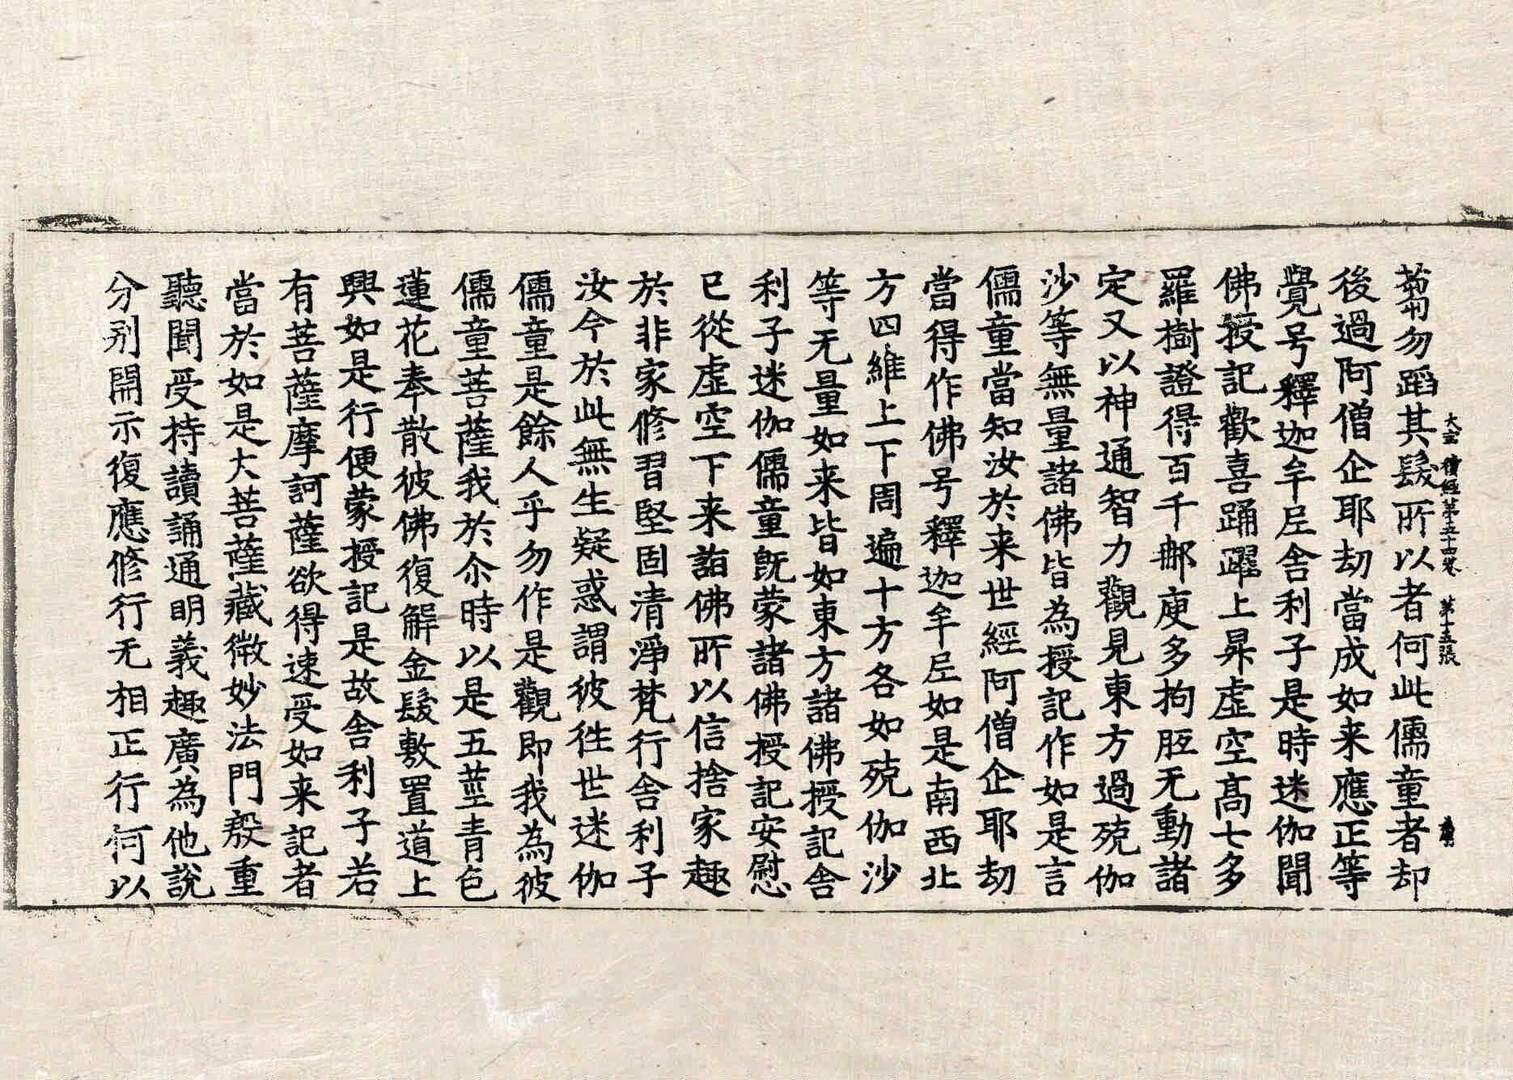 大宝積經第五十四卷 第十五張
蒭勿蹈其髮所以者何此儒童者却
後過阿僧企耶劫當成如来應正等
覺号釋迦牟尼舍利子是時迷伽聞
佛授記歡喜踊躍上昇虛空高七多
羅樹證得百千那庾多拘胝无動諸
定又以神通智力觀見東方過殑伽
沙等無量諸佛皆為授記作如是言
儒童當知汝於来世經阿僧企耶劫
當得作佛号釋迦牟尼如是南西北
方四維上下周遍十方各如殑伽沙
等无量如来皆如東方諸佛授記舍
利子迷伽儒童旣蒙諸佛授記安慰
已從虛空下来詣佛所以信捨家趣
於非家修習堅固清淨梵行舍利子
汝今於此無生疑惑謂彼往世迷伽
儒童是餘人乎勿作是觀即我為彼
儒童菩薩我於尒時以是五莖青色
蓮花奉散彼佛復解金髮敷置道上
興如是行便蒙授記是故舍利子若
有菩薩摩訶薩欲得速受如来記者
當於如是大菩薩藏微妙法門殷重
聽聞受持讀誦通明義趣廣為他說
分别開示復應修行无相正行何以